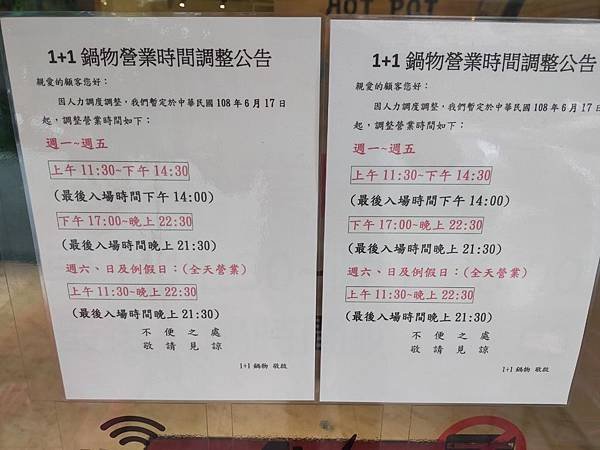 HOT POT
1+1 鍋物營業時間調整公告
親愛的顧客您好：
因人力調度調整，我們暫定於中華民國 108 年 6 月 17 日
起，調整營業時間如下：
週一~週五
上午 11:30~下午 14:30
(最後入場時間下午 14:00)
下午 17:00~晚上 22:30
(最後入場時間晚上 21:30)
週六、日及例假日：(全天營業)
上午 11:30~晚上 22:30
(最後入場時間晚上 21:30)
不 便 之 處
敬 請 見 諒
1+1 鍋物 敬啟
1+1 鍋物營業時間調整公告
親愛的顧客您好：
因人力調度調整，我們暫定於中華民國 108 年 6 月 17 日
起，調整營業時間如下：
週一~週五
上午 11:30~下午 14:30
(最後入場時間下午 14:00)
下午 17:00~晚上 22:30
(最後入場時間晚上 21:30)
週六、日及例假日：(全天營業)
上午 11:30~晚上 22:30
(最後入場時間晚上 21:30)
不 便 之 處
敬 請 見 諒
1+1 鍋物 敬啟